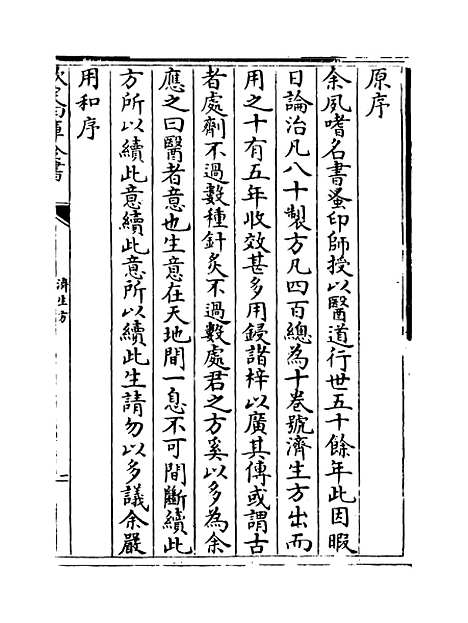 原序
余夙嗜名書蚤印師授以醫道行世五十餘年此因暇
日論治凡八十製方凡四百總為十卷號濟生方出而
用之十有五年收效甚多用鋟諸梓以廣其傳或謂古
者處劑不過數種針灸不過數處君之方奚以多為余
應之曰醫者意也生意在天地間一息不可間斷續此
方所以續此意續此意所以續此生請勿以多議余嚴
用和序
欽定四庫全書
濟生方
二